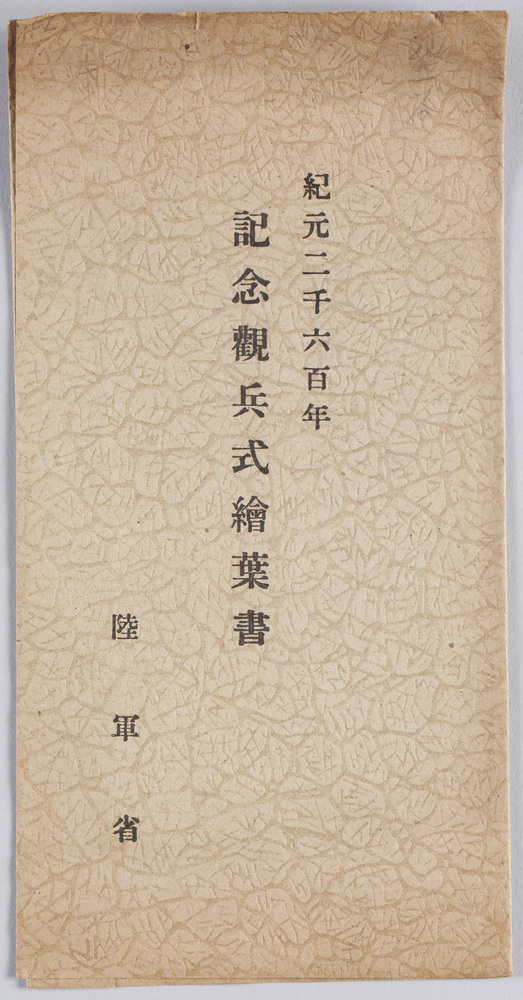 紀元二千六百年
記念觀兵式繪葉書
陸軍省